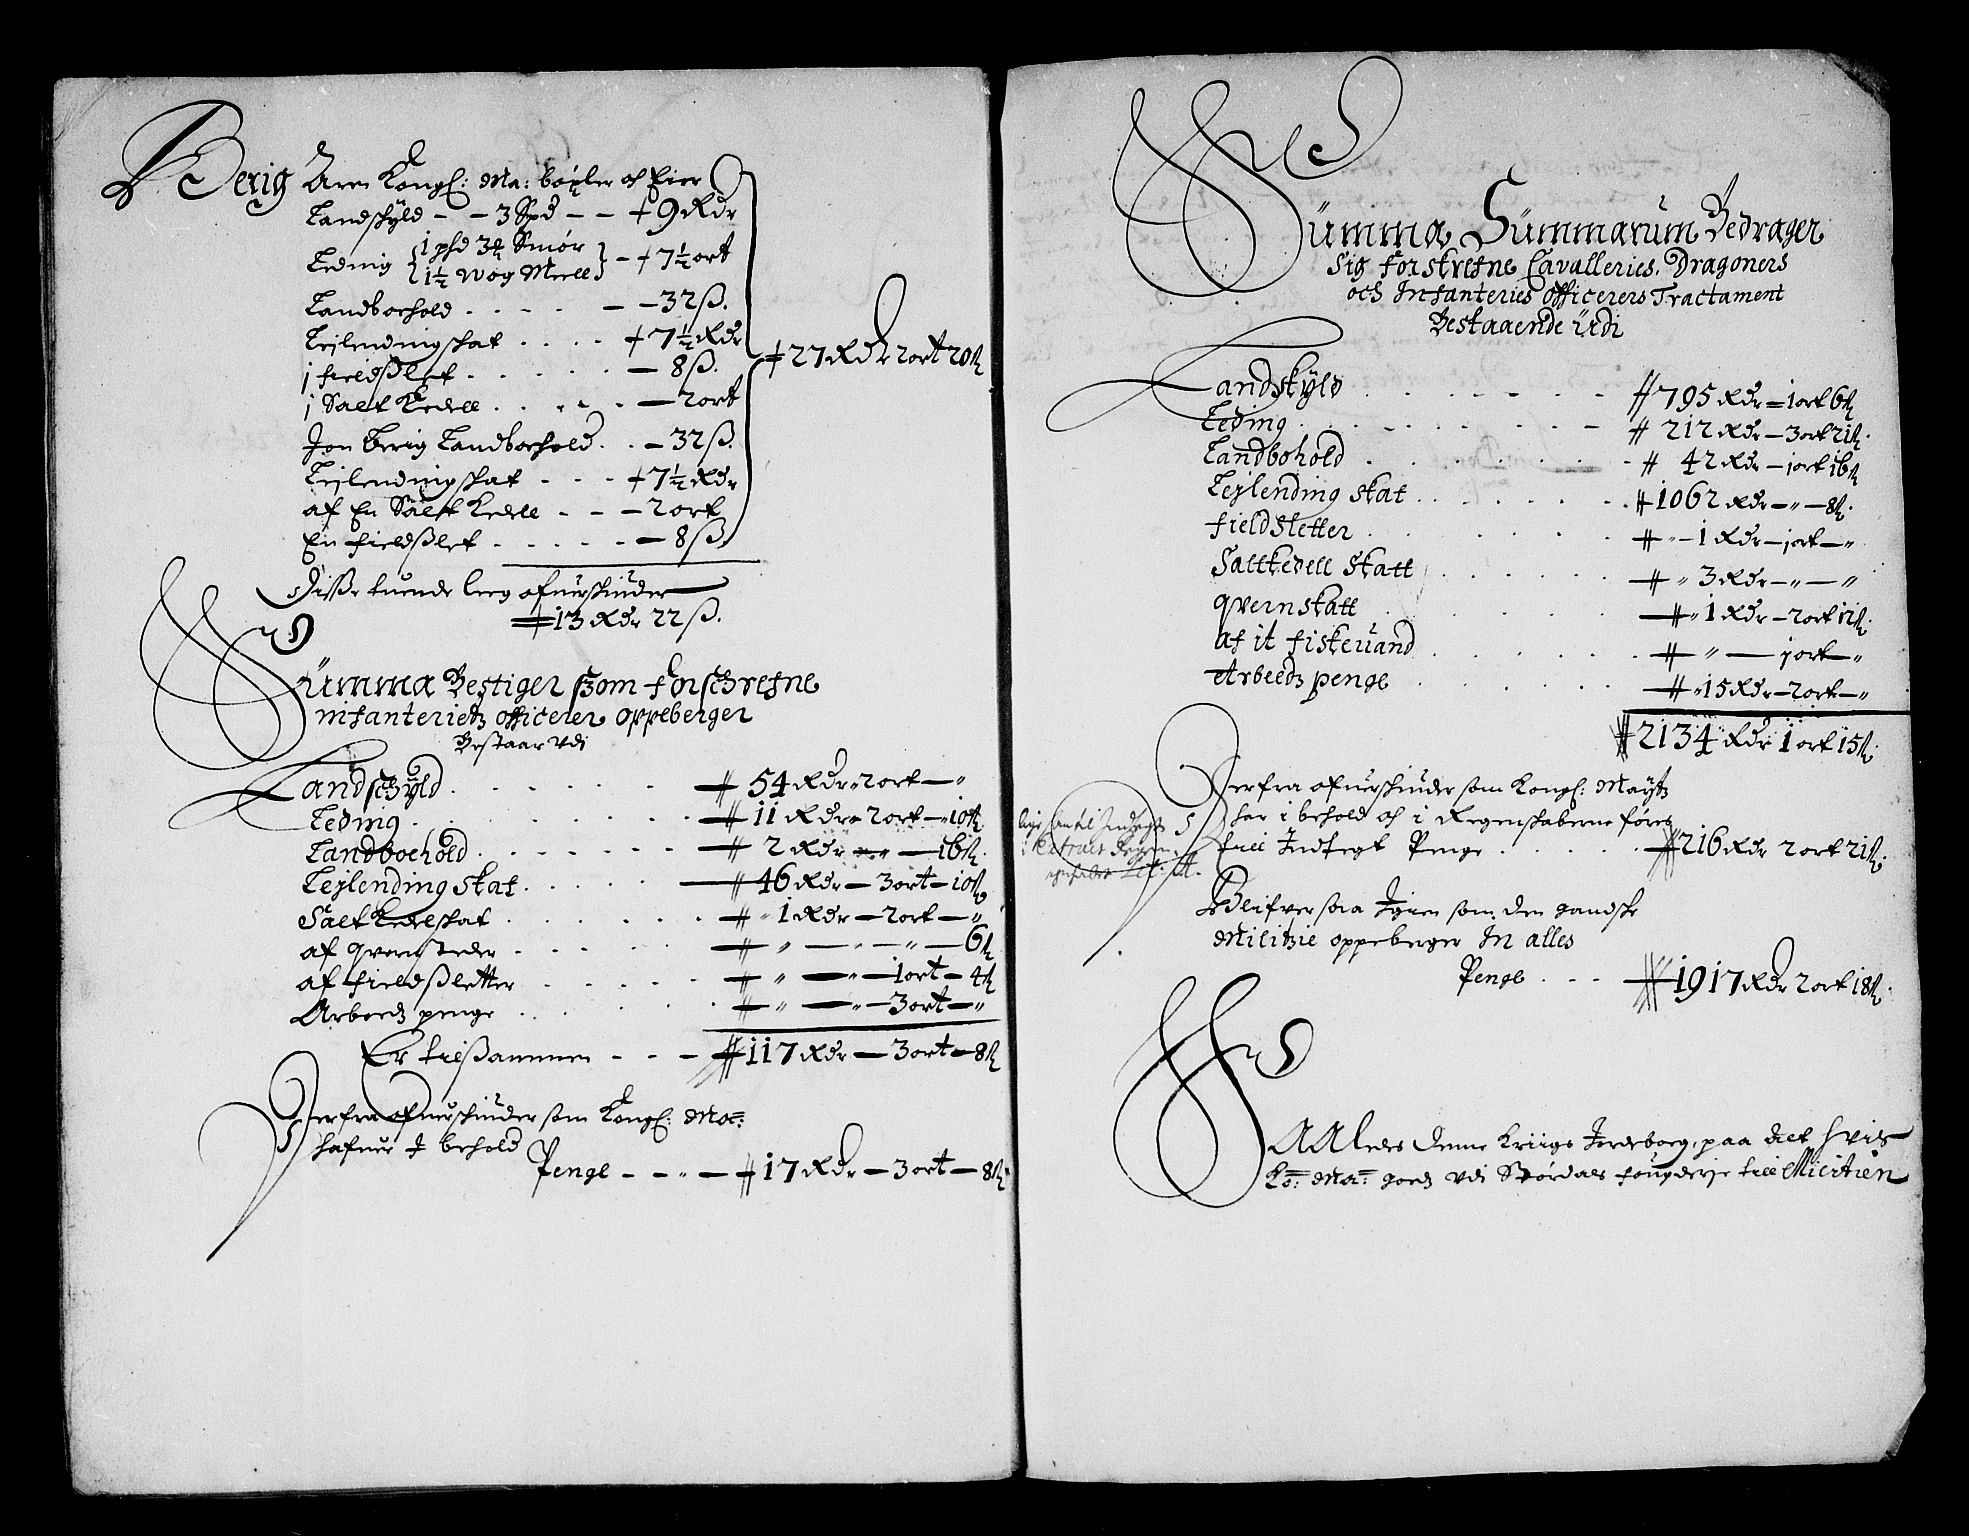 Berig Aren Kongl: Ma: böxler och Eier
Landskyld - - 3 Spd - - 9 Rdr
Leding { 1 pfd 3 ℔ Smör
1½ Wog Meell } - 7½ ort
Landboehold . . . . - - 32 ß.
Leilendingskat . . . . 7½ Rdr
j fieldßlet . . . . . - 8 ß.
j Salt Kedell . . . . - 2 ort
27 Rdr 2 ort 20 ß
Jon Berig Landboehold . . - 32 ß.
Leilendingskat - - - 7½ Rdr
af En Salt Kedell - - - 2 ort
En fieldßlet . . . . . - 8 ß.
Disse tuende leeg afuerskuder
13 Rdr 22 ß.
Summa Bestiger szom forschrefne
infanterietz officerer oppeberger
Bestaar Vdi
Landschyld . . . . . 54 Rdr - 2 ort - "
Leding . . . . . 11 Rdr - 2 ort - 10 ß
Landboehold . . . . . 2 Rdr - " - 16 ß.
Leylending skat . . . . . 46 Rdr - 3 ort - 10 ß
Salt Kedelskat . . . . . 1 Rdr - 2 ort - "
af qvernsteder . . . . - " - " - 6 ß
af fieldßletter . . . . - " - 1 ort - 4 ß
Arbeedz penge . . . . - " - 3 ort - "
Er tilsammen - - - 117 Rdr - 3 ort - 8 ß
Herfra afuerskuder som Kongl: Ma:
hafuer I behold
Penge - - " - 17 Rdr - 3 ort - 8 ß
Summa Summarum Bedrager
Sig forskrefne Cavalleries, Dragoners
och Infanteries officerers Tractament
Bestaaende Udi
Landskyld . . . . . 795 Rdr - 1 ort 6 ß
Leding . . . . . 212 Rdr - 3 ort 21 ß.
Landbohold . . . . . 42 Rdr - j ort 16 ß
Leylending skat . . . . . 1062 Rdr - " - 8 ß.
fieldsletter . . . . . " - 1 Rdr - j ort - "
Saltkedell skatt . . . . " 3 Rdr - " - "
qvernskatt . . . . " 1 Rdr - 2 ort 12 ß.
af it fiskeuand . . . . " - j ort - "
Arbeedz penge . . . . " 15 Rdr - 2 ort - "
2134 Rdr 1 ort 15 ß.
Herfra afuerskuder som Kongl: Maytz
har i behold och i Regenskaberne föres
till Indtegt Penge . . . . . 216 Rdr 2 ort 21 ß.
Extract
Lit: A.
Blifver saa Igien som den gandske
Militzie oppeberger In alles
Penge . . - - 1917 Rdr 2 ort 18 ß.
SAAledes denne Kriigs Jordeboeg, paa det hvis
Ko: Ma: godz vdi Stördals fougderje till Militien